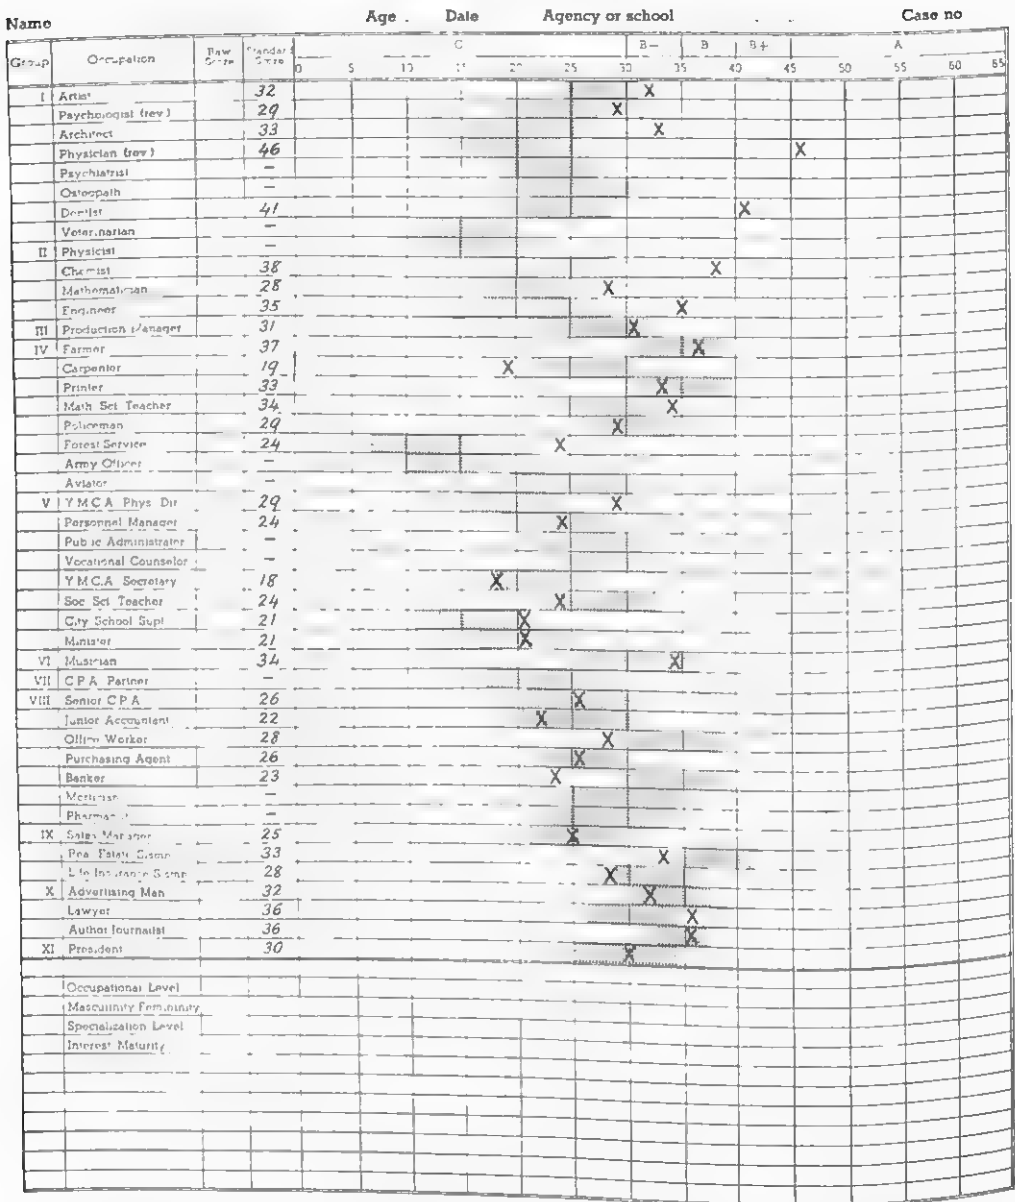 Name Age Date Agency or school Case no
C B− B B+ A
Group Occupation Raw Score Standard Score 0 5 10 15 20 25 30 35 40 45 50 55 60 65
I Artist 32 X
Psychologist (rev) 29 X
Architect 33 X
Physician (rev) 46 X
Psychiatrist –
Osteopath –
Dentist 41 X
Veterinarian –
II Physicist –
Chemist 38 X
Mathematician 28 X
Engineer 35 X
III Production Manager 31 X
IV Farmer 37 X
Carpenter 19 X
Printer 33 X
Math Sci Teacher 34 X
Policeman 29 X
Forest Service 24 X
Army Officer –
Aviator –
V Y M C A Phys Dir 29 X
Personnel Manager 24 X
Public Administrator –
Vocational Counselor –
Y M C.A Secretary 18 X
Soc Sci Teacher 24 X
City School Supt 21 X
Minister 21 X
VI Musician 34 X
VII C P A Partner –
VIII Senior C P A 26 X
Junior Accountant 22 X
Office Worker 28 X
Purchasing Agent 26 X
Banker 23 X
Mortician –
Pharmacist –
IX Sales Manager 25 X
Real Estate Slsmn 33 X
Life Insurance Slsmn 28 X
X Advertising Man 32 X
Lawyer 36 X
Author Journalist 36 X
XI President 30 X
Occupational Level
Masculinity Femininity
Specialization Level
Interest Maturity